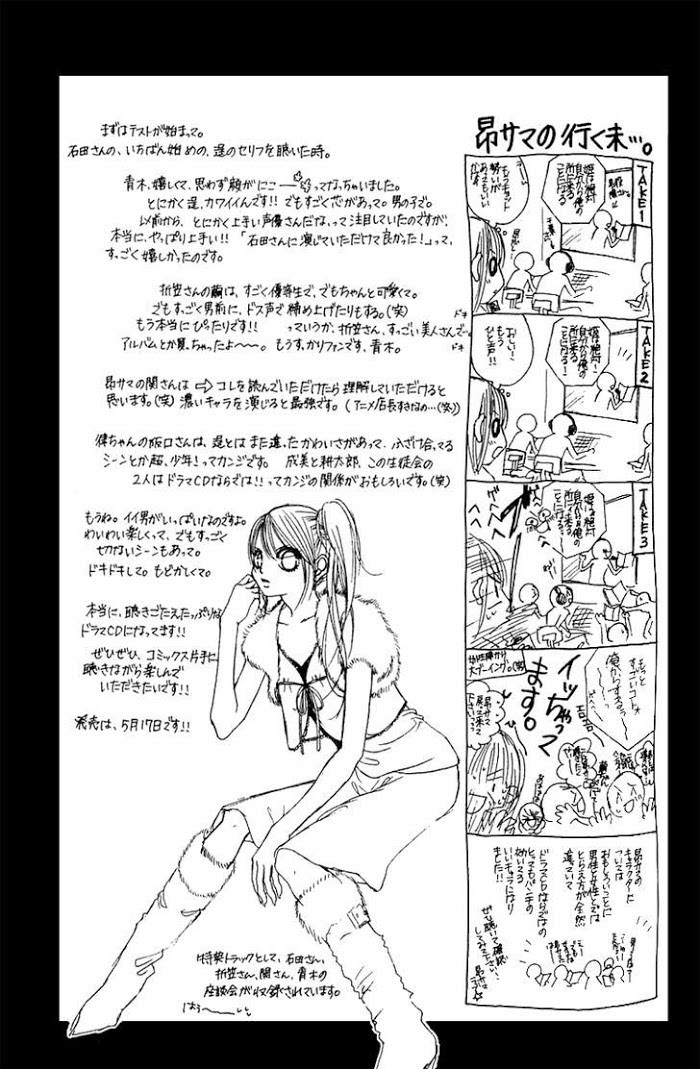 まずはテストが始まって。
石田さんの、いちばん始めの、遥のセリフを聴いた時。
青木、嬉しくて、思わず顔がにこーってなっちゃいました。
とにかく遥、カワイイんです!! でもすごく芯があって。男の子で。
以前から、とにかく上手い声優さんだなって注目していたのですが、
本当に、やっぱり上手い!! 「石田さんに演じていただけて良かった!」って、
すっごく嬉しかったのです。
折笠さんの繭は、すごく優等生で、でもちゃんと可愛くて。
でもすっごく男前に、ドス声で締め上げたりもする。(笑)
もう本当にぴったりです!! っていうか、折笠さん、すっごい美人さんで…
ドキ
ドキ
アルバムとか買っちゃったよ〜〜。もうすっかりファンです、青木。
昂サマの関さんは ⇨ コレを読んでいただけたら理解していただけると
思います。(笑) 濃いキャラを演じると最強です。(アニメ店長すきなの…(笑))
ちゃんの阪口さんは、遥とはまた違ったかわいさがあって、ふざけ合ってる
シーンとか超、少年!ってカンジです。 成美と耕太郎、この生徒会の
2人はドラマCDならでは!!ってカンジの関係がおもしろいです。(笑)
もうね。イイ男がいっぱいなのですよ。
わいわい楽しくって、でもすっごく
切ないシーンもあって。
ドキドキして。もどかしくて。
本当に、聴きごたえたっぷりな
ドラマCDになってます!!
ぜひぜひ、コミックス片手に
聴きながら楽しんで
いただきたいです!!
発売は、5月17日です!!
特典トラックとして、石田さん、
折笠さん、関さん、青木の
座談会が収録されています。
はぅ〜
昂サマの行く末…。
TAKE1
姫は絶対
自分から俺の
所に来る
ことになる
もうチョット
勢いが
あってもいい
かな
TAKE2
姫は絶対!
自分から俺の
所に来る
ことになる!
おしい!
もう
ひと声!!
TAKE3
姫は絶対
自分から俺の
所に来る
ことになる
もっと
すっごいコト
俺からするぅ〜
イッちゃって
ます。
女性陣から
大ブーイング。(笑)
昂サマ
戻って来て
昂サマの
キャラクターに
ついては
おもしろいことに
男性と女性とでは
とらえ方が全然
違っていて
ドラマCDならではの
とってもパンチの
効いてる
いいキャラになり
ました!!
ぜひ聴いて確認
してみて下さい、
昂サマ☆